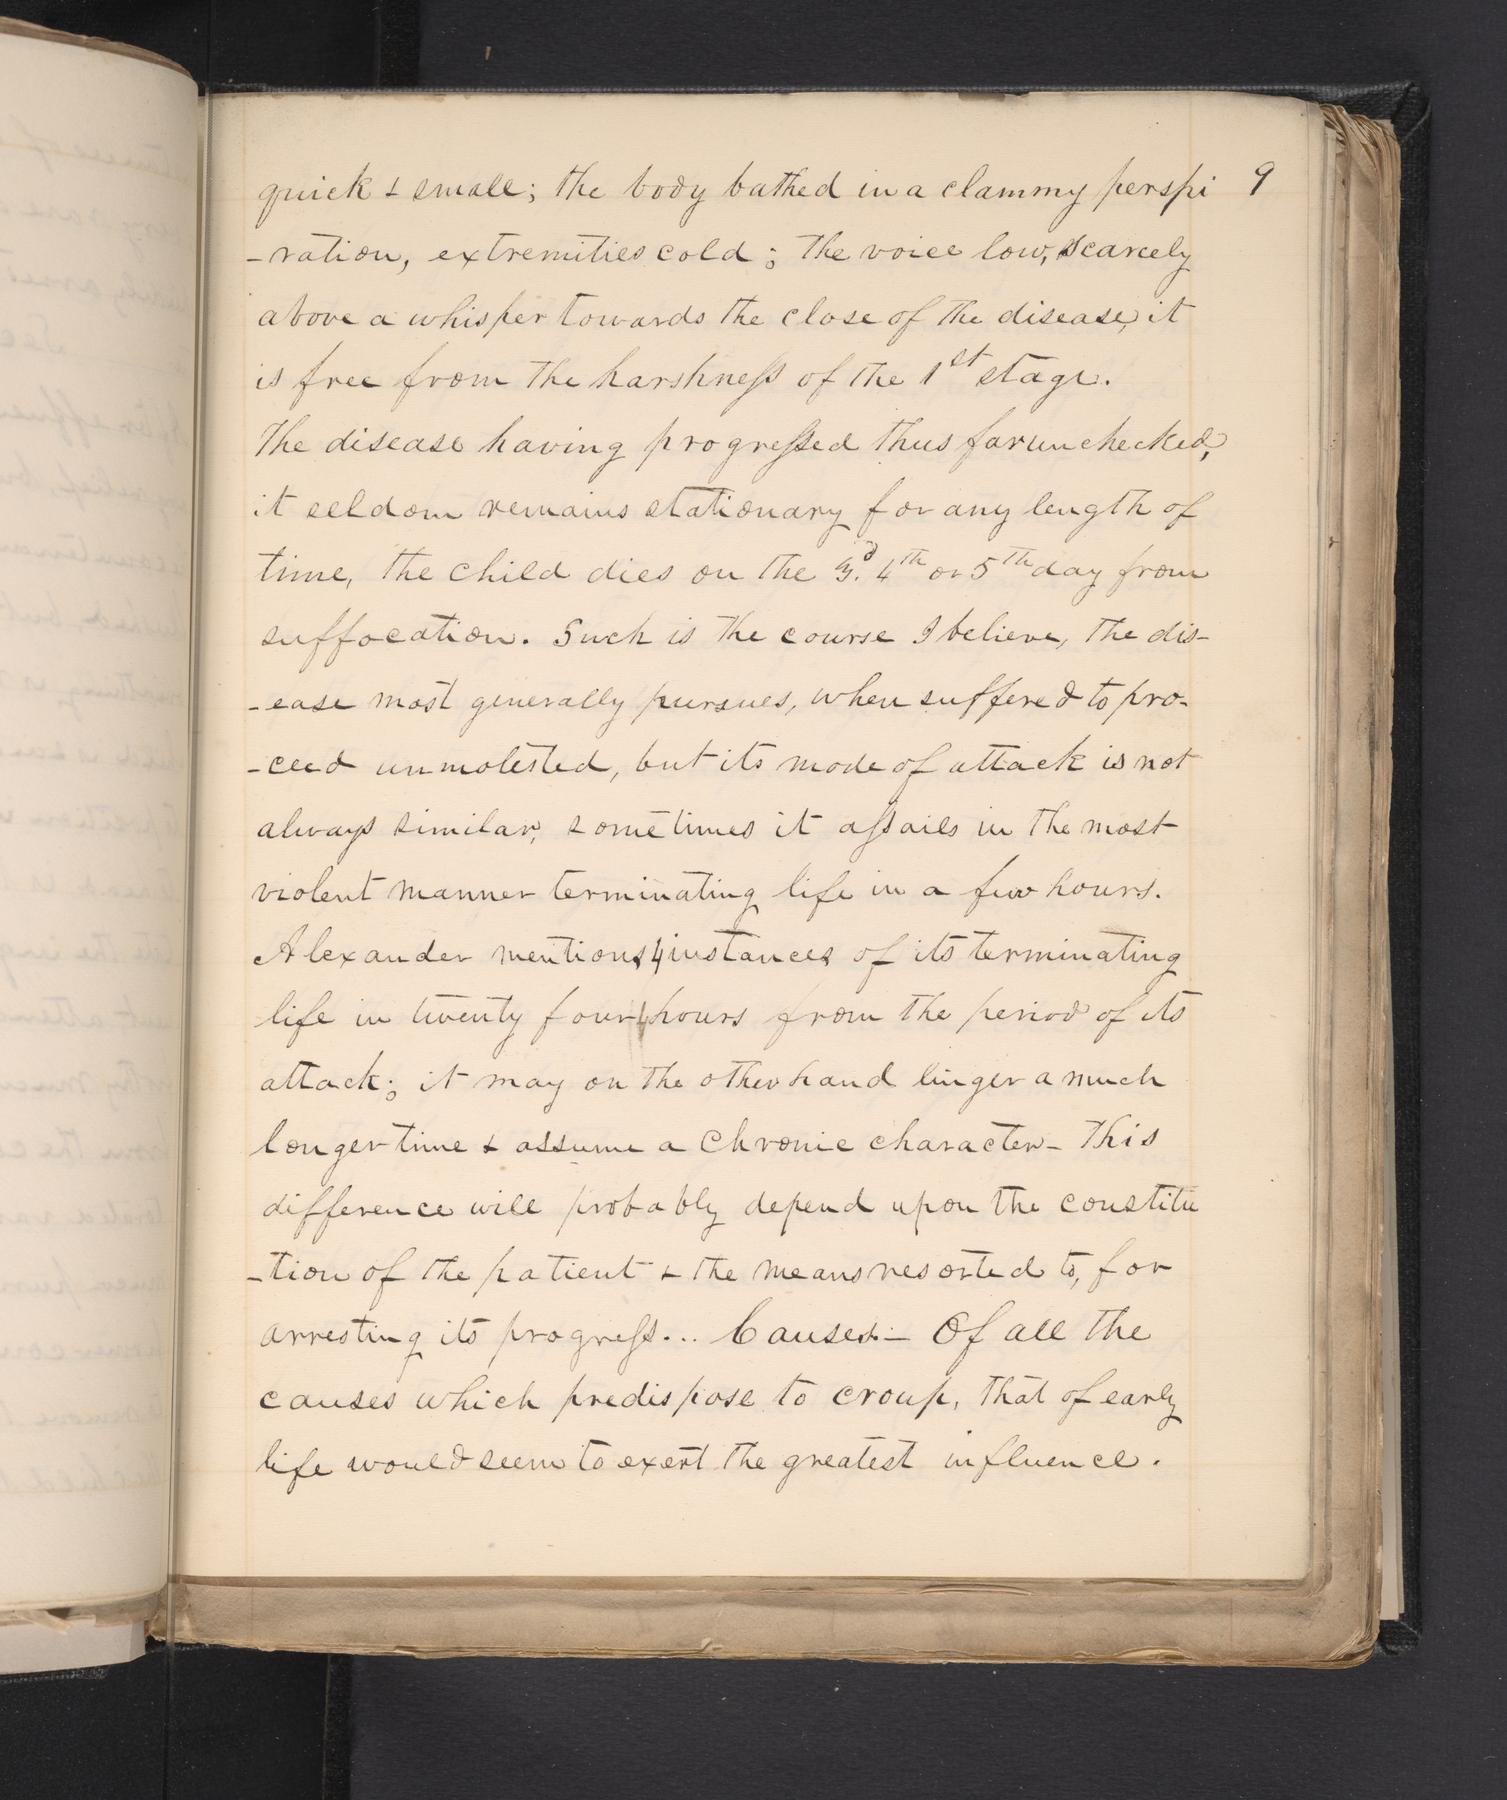 quick & small; the body bathed in a clammy perspi 9
-ration, extremities cold; the voice low, scarcely
above a whisper towards the close of the disease, it
is free from the harshneſs of the 1st stage.
The disease having progreſsed thus far unchecked,
it seldom remains stationary for any length of
time, the child dies on the 3d. 4th or 5th day from
suffocation. Such is the course I believe, the dis-
-ease most generally pursues, when suffered to pro-
-ceed unmolested, but its mode of attack is not
always similar, sometimes it aſsails in the most
violent manner terminating life in a few hours.
Alexander mentions 4 instances of its terminating
life in twenty four hours from the period of its
attack; it may on the other hand linger a much
longer time & assume a Chronic character - This
difference will probably depend upon the constitu
-tion of the patient & the means resorted to, for
arresting its progreſs... Causes.- Of all the
causes which predispose to croup, that of early
life would seem to exert the greatest influence.